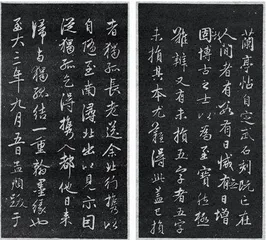 蘭亭帖自定武石刻既亡在
人間者有數有日減無日增
故博古之士以為至寶然極
難辨又有未損五字者五字
未損其本尤難得此蓋已損
者獨孤長老送余北行攜以
自隨至南潯北出以見示因
從獨孤乞得攜入都他日來
歸與獨孤結一重翰墨緣也
至大三年九月五日孟頫跋于